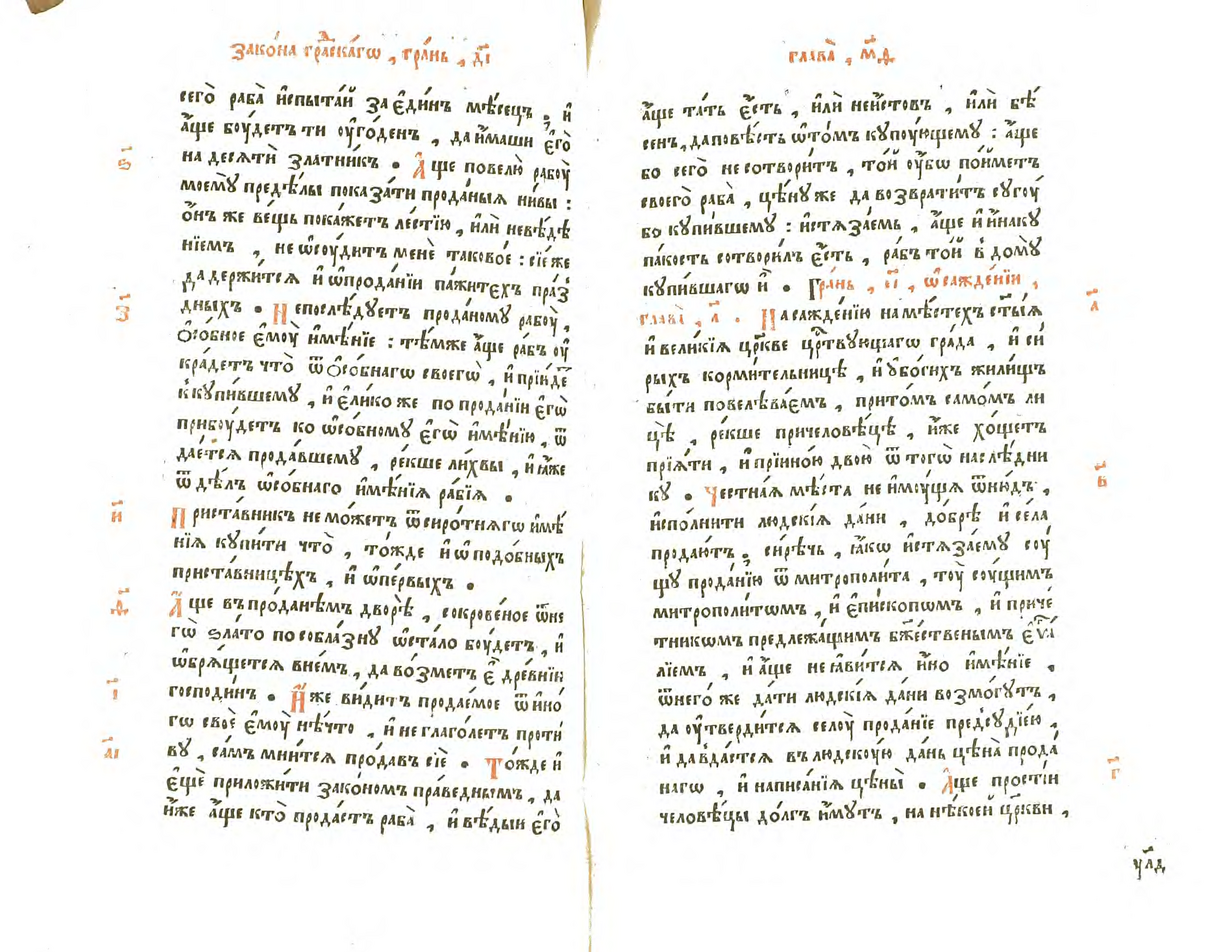 Зако́на гра́дскагѡ , гра́нь , д҃і
сего̀ раба̀ и҆спыта́й за є҆ди́нъ мѣ́сецъ , и҆
а҆́ще боу́детъ ти оу҆го́денъ , да и҆́маши є҆го̀
на десѧти́ златни́къ . А҆́ще повелю̀ рабоу̀
моемꙋ̀ предѣ́лы показа́ти прода́ныѧ ни́вы :
ѻ҆́нъ же ве́щь пока́жетъ ле́стїю , и҆лѝ невѣ́дѣ
нїемъ , не ѡ҆соу́дитъ менѐ таково́е : сїе́ же
да держи́тсѧ и҆ ѡ҆прода́нїи па́житехъ пра́з
дныхъ . Непослѣ́дуетъ прода́ному рабоу̀ ,
ѻ҆со́бное є҆моу̀ и҆мѣ́нїе : тѣ́мже а҆́ще ра́бъ оу҆
кра́детъ что̀ ѿ ѻ҆со́бнагѡ своегѡ̀ , и҆ прїи́де
к кꙋпи́вшему , и҆ є҆ли́ко же по прода́нїи є҆гѡ̀
прибоу́детъ ко ѡ҆со́бномꙋ є҆гѡ̀ и҆мѣ́нїю , ѿ
дае́тсѧ прода́вшемꙋ , ре́кше ли́хвы , и҆ ꙗ҆́же
ѿ дѣ́лъ ѡ҆со́бнаго и҆мѣ́нїѧ ра́бїѧ .
Приста́вникъ не мо́жетъ ѿ сиро́тнѧгѡ и҆мѣ́
нїѧ кꙋпи́ти что̀ , то́жде и҆ ѡ҆ подо́бныхъ
приста́вницѣхъ , и҆ ѡ҆ пе́рвыхъ .
А҆́ще въ про́данѣмъ дворѣ̀ , сокрове́ное ѿ не
гѡ̀ ѕла́то по собла́знꙋ ѡ҆ста́ло боу́детъ , и҆
ѡ҆брѧ́щетсѧ в не́мъ , да во́змет є҆̀ дре́внїи
господи́нъ . И҆́же ви́дитъ продае́мое ѿ и҆но
гѡ своѐ є҆моу̀ нѣ́что , и҆ не глаго́летъ проти
вꙋ , са́мъ мни́тсѧ прода́въ сїѐ . То́жде и҆
є҆щѐ приложи́ти зако́номъ пра́веднымъ , да
и҆́же а҆́ще кто̀ прода́стъ раба̀ , и҆ вѣ́дыи є҆го̀
ѕ҃
з҃
и҃
ѳ҃
і҃
а҃і
глава̀ , м҃ѳ
а҆́ще та́ть є҆́сть , и҆лѝ неи́стовъ , и҆лѝ бѣ́
сенъ , да повѣ́сть ѡ҆ то́мъ кꙋпоу́ющемꙋ : а҆́ще
бо сего̀ не сотвори́тъ , то́й оу҆́бѡ по́йметъ
своего̀ раба̀ , цѣ́нꙋ же да возврати́тъ сꙋгоу́
бо кꙋпи́вшемꙋ : и҆стѧза́емь , а҆́ще и҆ и҆́накꙋ
па́кость сотвори́лъ є҆́сть , ра́бъ то́й в домꙋ̀
кꙋпи́вшагѡ и҆̀ . Гра́нь , є҃і , ѡ҆ сажде́нїи ,
глава̀ , л҃ . Насажде́нїю на мѣ́стехъ ст҃ы́ѧ
и҆ вели́кїѧ цр҃кве цр҃твующагѡ гра́да , и҆ си́
рыхъ корми́тельницѣ , и҆ оу҆бо́гихъ жили́щъ
бы́ти повелѣва́емъ , при то́мъ само́мъ ли
цѣ̀ , ре́кше при человѣ́цѣ , и҆́же хо́щетъ
прїѧ́ти , и҆ при и҆но́ю двою̀ ѿ тогѡ̀ наслѣ́дни
кꙋ . Честна́ѧ мѣ́ста не и҆мꙋ́щѧ ѿню́дъ ,
и҆спо́лнити людскі́ѧ да́ни , до́брѣ и҆ се́ла
продаю́тъ , си́рѣчь , ꙗ҆́кѡ и҆стѧза́емꙋ соу́
щꙋ прода́нїю ѿ митрополи́та , тоу̀ соу́щимъ
митрополи́тѡмъ , и҆ є҆пи́скопѡмъ , и҆ приче́
тникѡмъ предлежа́щимъ бж҃е́ственымъ є҆ѵⷢ҇а́
лїемъ , и҆ а҆́ще не ꙗ҆́витсѧ и҆́но и҆мѣ́нїе ,
ѿ него́ же да́ти людскі́ѧ да́ни возмо́гутъ ,
да оу҆тверди́тсѧ селоу̀ прода́нїе пред̾ соудїе́ю ,
и҆ да вда́стсѧ въ людскоу́ю да́нь цѣна̀ прода́
нагѡ , и҆ написа́нїѧ цѣны̀ . А҆́ще прості́и
человѣ́цы до́лгъ и҆́мꙋтъ , на нѣ́коей цр҃кви ,
л҃
в҃
г҃
ул҃д